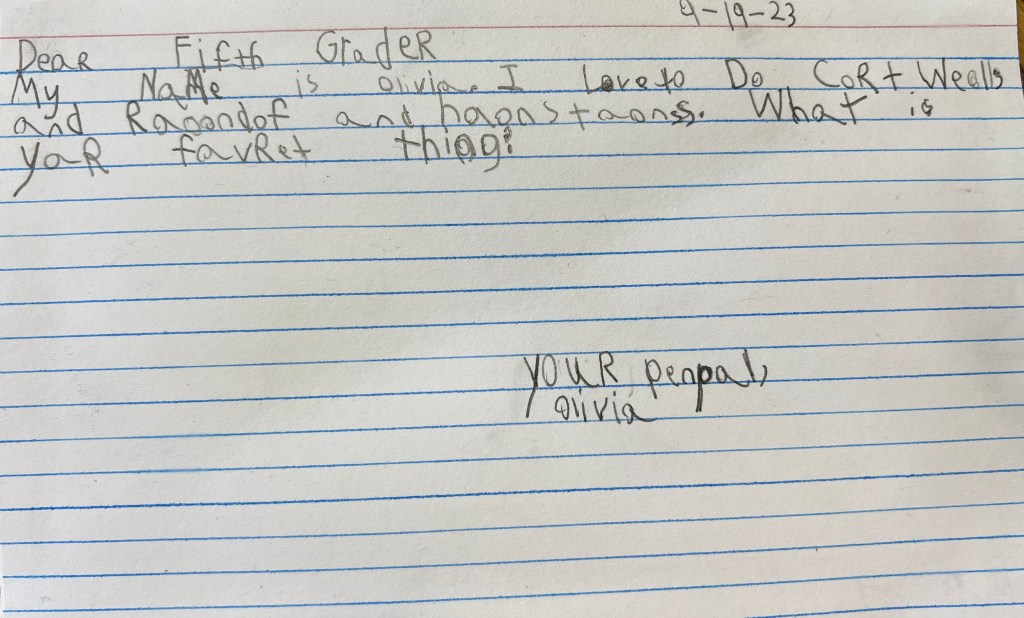 9-19-23
Dear Fifth GradeR
My NaMe is olivia. I Love to Do CoRt Wealls
and Raoondof and haons taonss. What is
yaR favRet thing?
YOUR penpal,
olivia